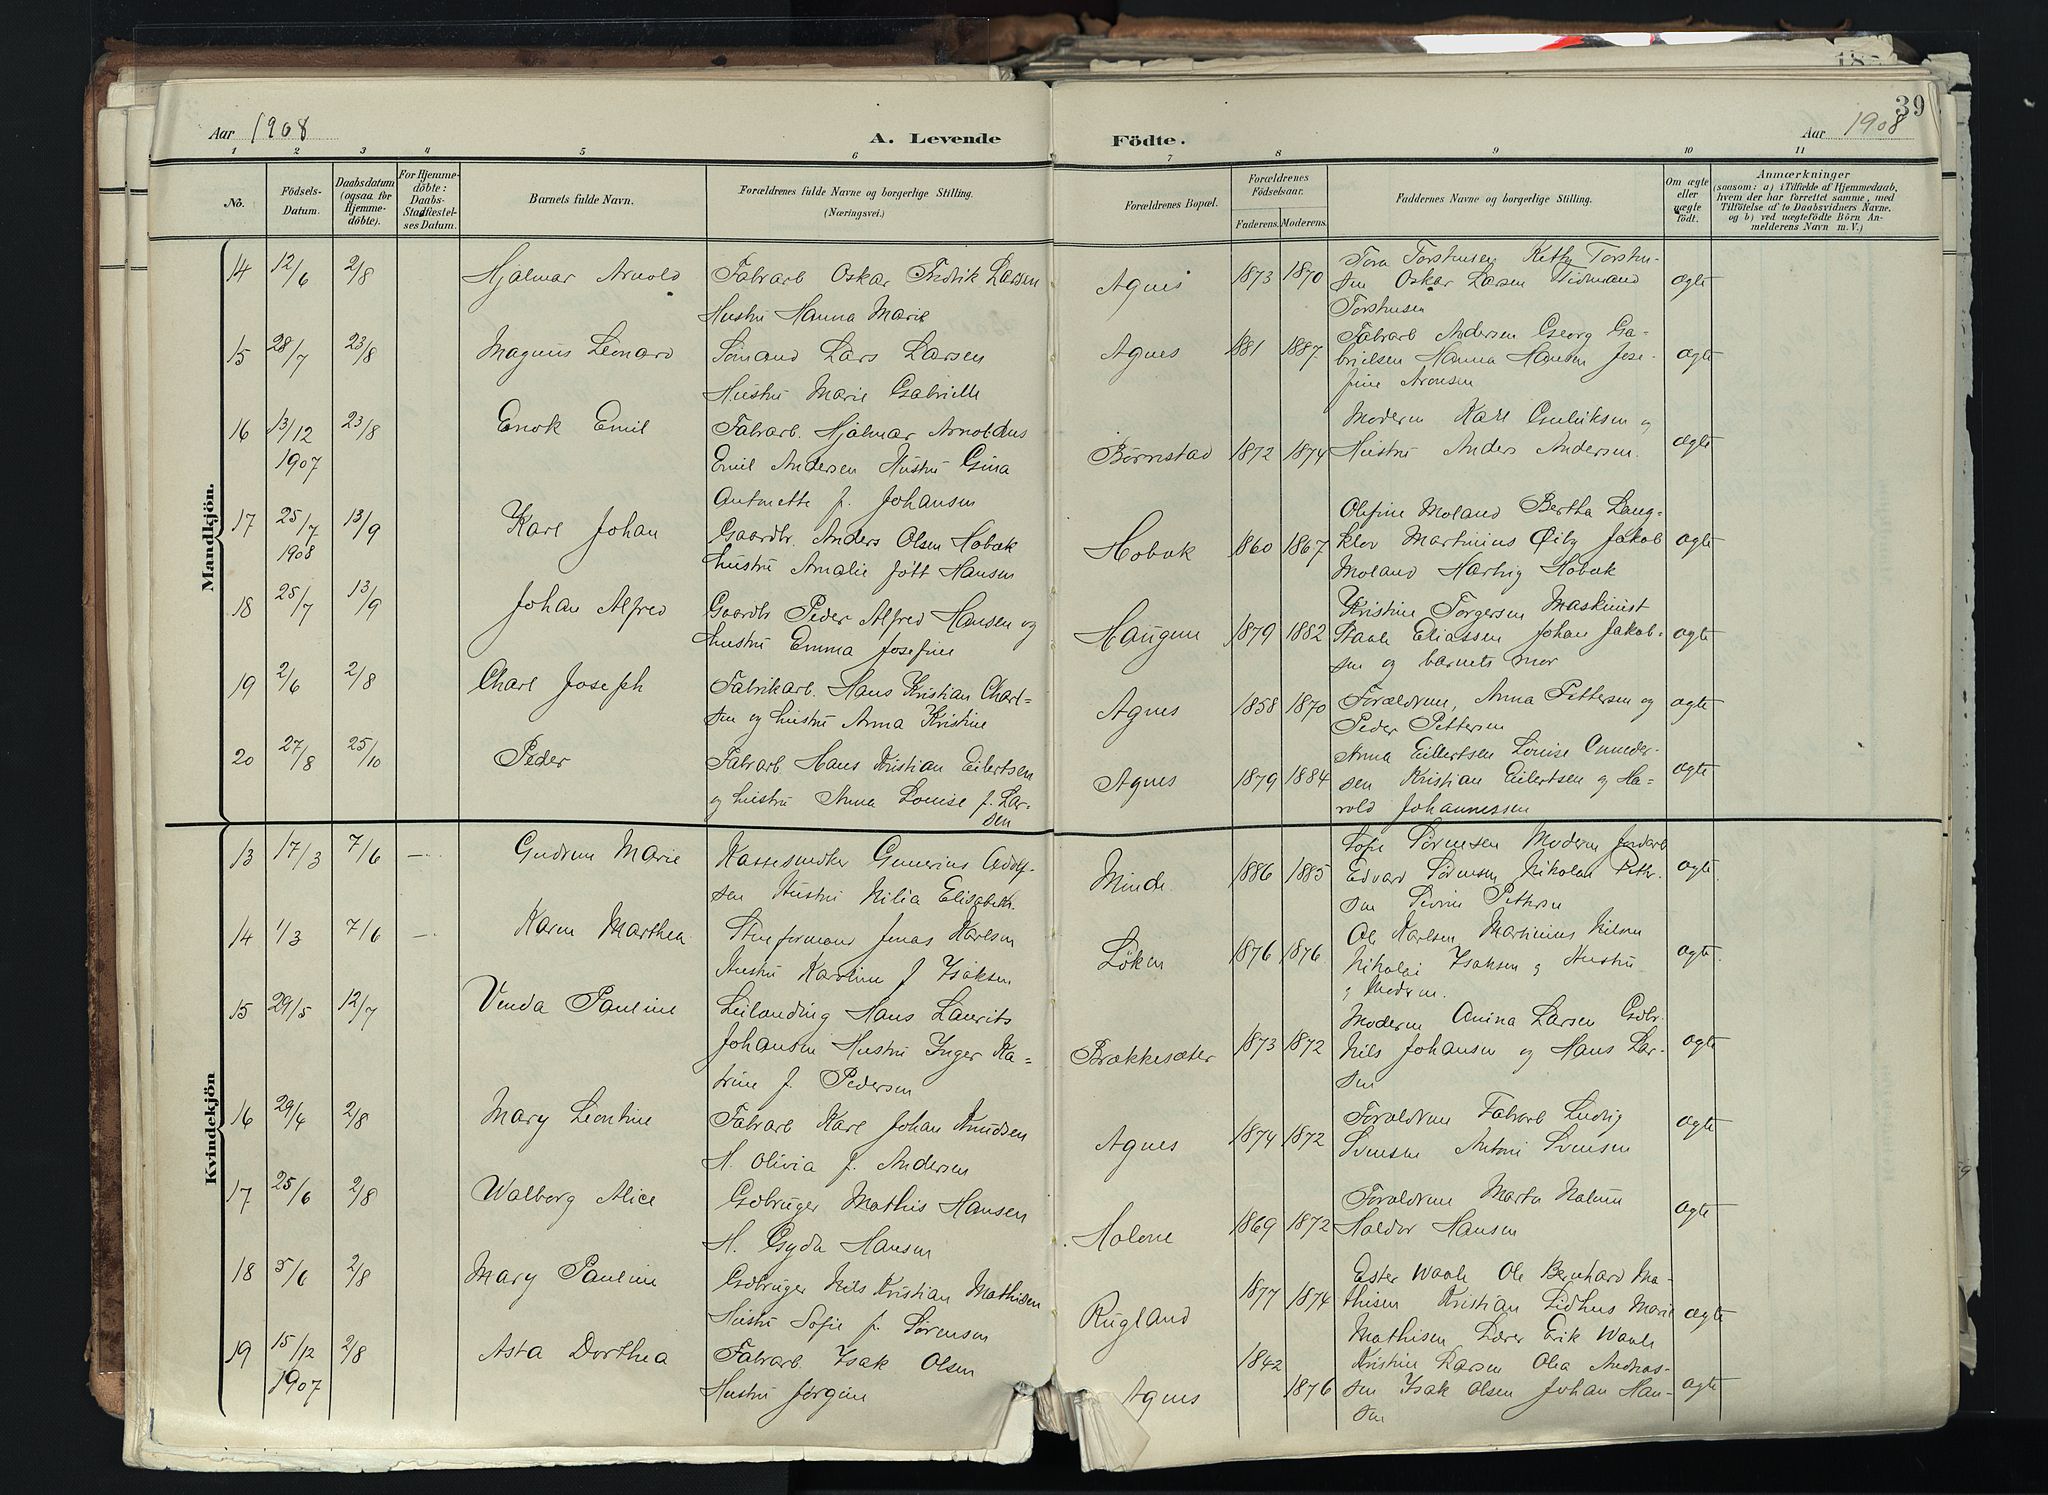 39
Aar 1908
A. Levende
Födte.
Aar 1908
1 2 3 4 5 6 7 8 9 10 11
No.
Födsels-
Datum.
Daabsdatum
(ogsaa for
Hjemme-
döbte).
For Hjemme-
döbte:
Daabs-
Stadfæstel-
ses Datum.
Barnets fulde Navn.
Forældrenes fulde Navne og borgerlige Stilling.
(Næringsvei.)
Forældrenes Bopæl.
Forældrenes
Födselsaar.
Faderens. Moderens.
Faddernes Navne og borgerlige Stilling.
Om ægte
eller
uægte
födt.
Anmærkninger
(saasom: a) i Tilfælde af Hjemmedaab,
hvem der har forrettet samme, med
Tilföielse af to Daabsvidners Navne.
og b) ved uægtefödte Börn An-
melderens Navn m. V.)
Mandkjön.
14 12/6 2/8 Hjalmar Arnold Fabrarb Oskar Fredrik Larsen
Hustru Hanna Marie
Agnes 1873 1870 Tora Torstensen Kethy Torsten-
sen Oskar Larsen Tidemand
Torstensen
ægte
15 28/7 23/8 Magnus Leonard Sömand Lars Larsen
Hustru Marie Gabrielle
Agnes 1881 1887 Fabrarb Andersen Georg Ga-
brielsen Hanna Hansen Jose-
fine Aronsen
ægte
16 13/12 1907 23/8 Enok Emil Fabrarb. Hjalmar Arnoldus
Emil Andersen Hustru Gina
Antonette f. Johansen
Börnstad 1872 1874 Moderen Karl Gulliksen og
Hustru Anders Andersen.
ægte
17 25/7 1908 13/9 Karl Johan Gaardbr. Anders Olsen Hobæk
hustru Amalie född Hansen
Hobæk 1860 1867 Olefine Moland Bertha Laug-
klev Martinius Öiby Jakob
Moland Hartvig Hobæk
ægte
18 25/7 13/9 Johan Alfred Gaardbr Peder Alfred Hansen og
hustru Emma Josefine
Haugen 1879 1882 Kristine Torgersen Maskinist
Paale Eliassen Johan Jakob-
sen og barnets mor
ægte
19 2/6 2/8 Charl Joseph Fabrikarb. Hans Kristian Charl-
sen og hustru Anna Kristine
Agnes 1858 1870 Forældrene, Anna Pettersen og
Peder Pettersen
ægte
20 27/8 25/10 Peder Fabrarb Hans Kristian Eilertsen
og hustru Anna Louise f. Lar-
sen
Agnes 1879 1884 Anna Eilertsen Louise
sen Kristian Eilertsen og Ha-
rold Johannessen
ægte
Kvindekjön
13 17/3 7/6 Gudrun Marie Kassesnedker Gunerius Adolf-
sen Hustru Nilia Elisabeth.
Minde 1886 1885 Sofie Sörensen Moderen Jordarb
Edvard Sörensen Nikolai Peter-
sen Sevrine Petersen
ægte.
14 1/3 7/6 Karen Marthea Stenformand Jonas Karlsen
Hustru Karoline f Isaksen
Löken 1876 1876 Ole Karlsen Martinius Nilsen
Nikolai Isaksen og Hustru
og Moderen.
ægte.
15 29/5 12/7 Venda Pauline Leilænding Hans Laurits
Johansen Hustru Inger Ka-
trine f. Pedersen
Brækkesæter 1873 1872 Moderen Anina Larsen Gdbr.
Nils Johansen og Hans Lar-
sen
ægte
16 29/4 2/8 Mary Leontine Fabrarb Karl Johan Knudsen
H. Olivia f. Andersen
Agnes 1874 1872 Forældrene Fabrarb Ludvig
Svensen Antoni Svensen
ægte
17 25/6 2/8 Walborg Alice Gdbruger Mathis Hansen
H. Gyda Hansen
Holone 1869 1872 Forældrene Marta Nalum
Haldor Hansen
ægte
18 5/6 2/8 Mary Pauline Gdbruger Nils Kristian Mathisen
Hustru Sofie f. Sörensen
Rugland 1877 1874 Ester Waale Ole Bernhard Ma-
thisen Kristian Lidhus Marie
Mathisen Lærer Erik Waale
ægte
19 15/12 1907 2/8 Asta Dorthea Fabrarb. Isak Olsen
Hustru Jörgine
Agnes 1842 1876 Kristine Larsen Olea Andreas-
sen Isak Olsen Johan Han-
sen
ægte